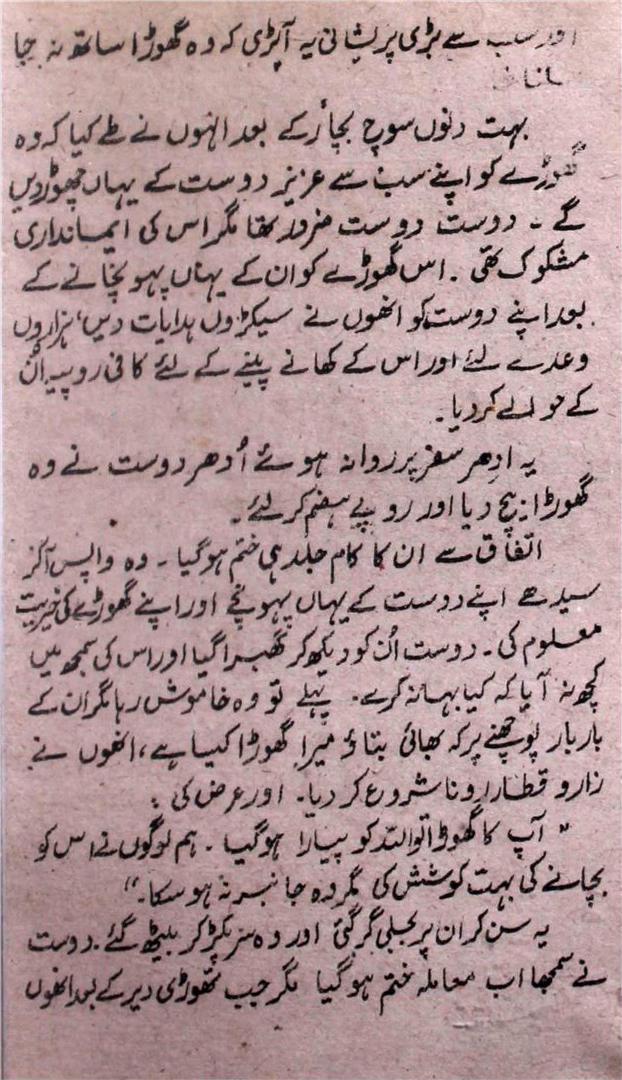 اور سب سے بڑی پریشانی یہ آپڑی کہ وہ گھوڑا ساتھ نہ جا
سکتا تھا
بہت دنوں سوچ بچار کے بعد انہوں نے طے کیا کہ وہ
گھوڑے کو اپنے سب سے عزیز دوست کے یہاں چھوڑ دیں
گے ۔ دوست دوست ضرور تھا مگر اس کی ایمانداری
مشکوک تھی ۔ اس گھوڑے کو ان کے یہاں پہونچانے کے
بعد اپنے دوست کو انھوں نے سیکڑوں ہدایات دیں، ہزاروں
وعدے لئے اور اس کے کھانے پینے کے لئے کافی روپیہ اُن
کے حوالے کردیا۔
یہ ادھر سفر پر روانہ ہوئے اُدھر دوست نے وہ
گھوڑا بیچ دیا اور روپے ہضم کر لئے۔
اتفاق سے ان کا کام جلد ہی ختم ہوگیا ۔ وہ واپس آکر
سیدھے اپنے دوست کے یہاں پہونچے اور اپنے گھوڑے کی خیریت
معلوم کی ۔ دوست اُن کو دیکھ کر گھبرا گیا اور اس کی سمجھ میں
کچھ نہ آیا کہ کیا بہانہ کرے۔ پہلے تو وہ خاموش رہا مگر ان کے
بار بار پوچھنے پر کہ بھائی بتاؤ میرا گھوڑا کیسا ہے، انھوں نے
زار و قطار رونا شروع کر دیا۔ اور عرض کی :
" آپ کا گھوڑا تو اللہ کو پیارا ہوگیا ۔ ہم لوگوں نے اس کو
بچانے کی بہت کوشش کی مگر وہ جانبر نہ ہو سکا۔"
یہ سن کر ان پر بجلی گر گئی اور وہ سر پکڑ کر بیٹھ گئے ۔ دوست
نے سمجھا اب معاملہ ختم ہوگیا مگر جب تھوڑی دیر کے بعد انھوں